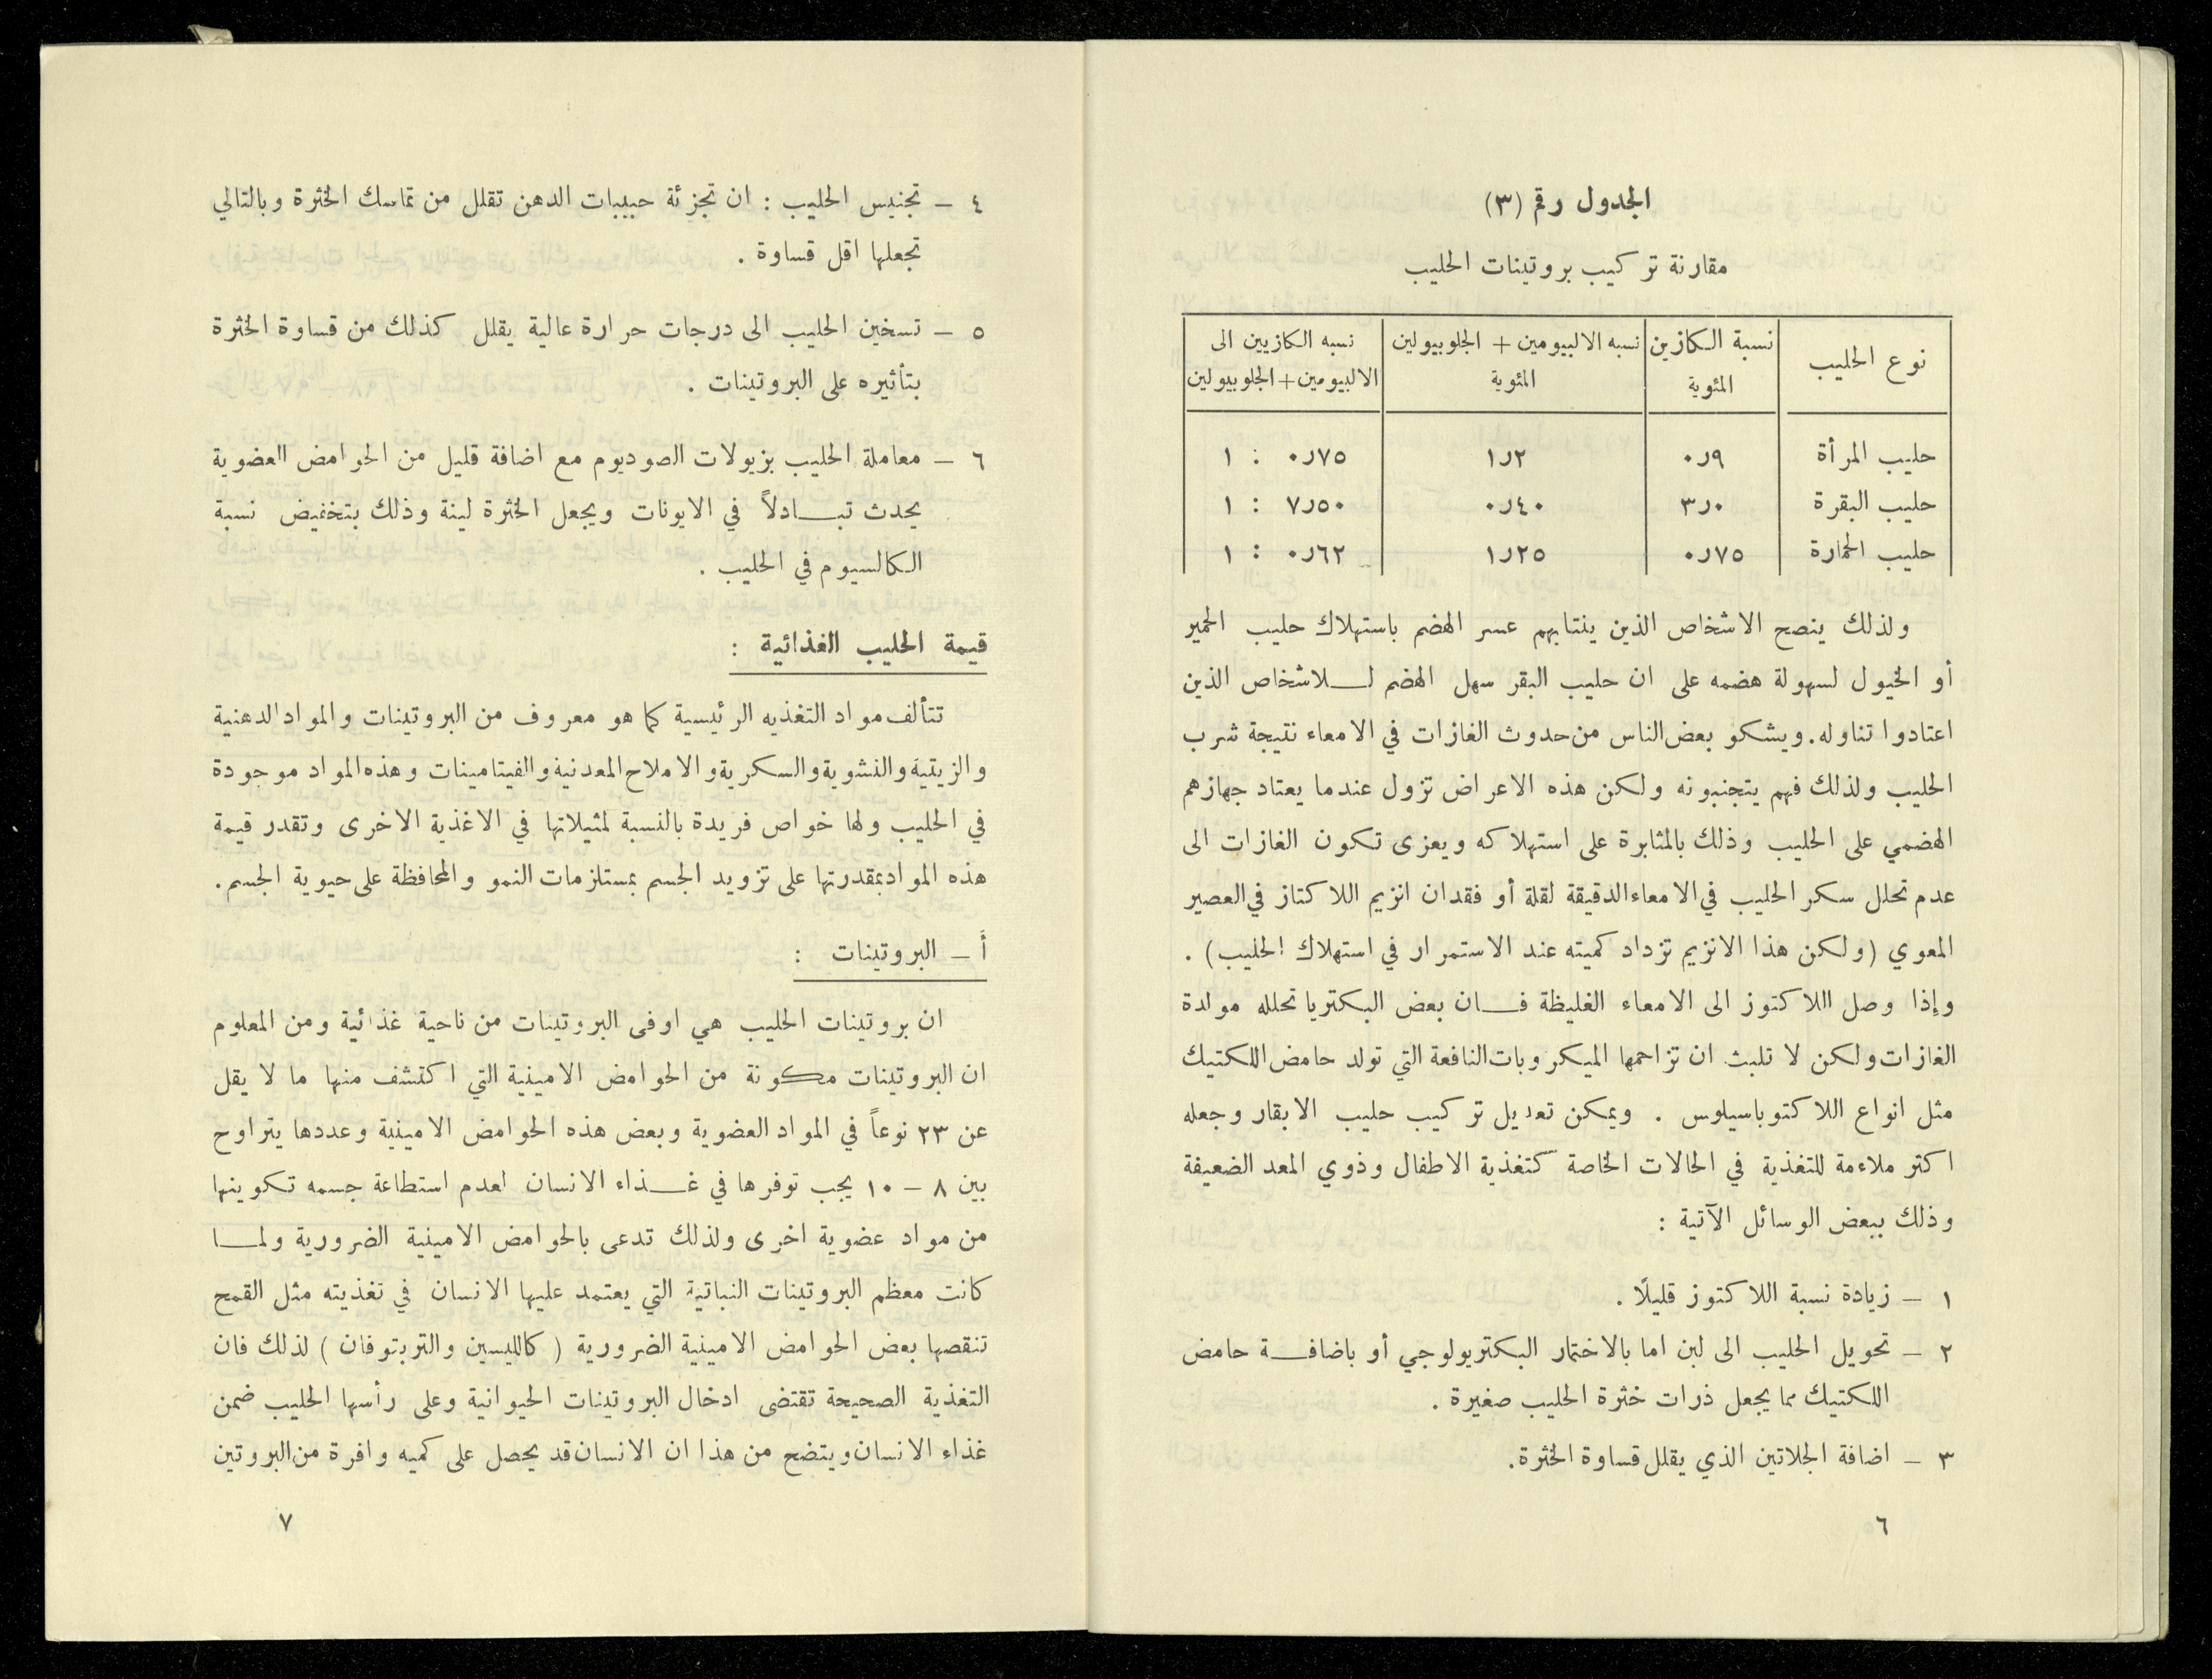 الجدول رقم (٣)
مقارنة تركيب بروتينات الحليب
نوع الحليب | نسبة الكازين المئوية | نسبه الالبيومين + الجلوبيولين المئوية | نسبه الكازيين الى الالبيومين + الجلوبيولين
حليب المرأة | ٠ر٩ | ١ر٢ | ٠ر٧٥ : ١
حليب البقرة | ٣ر٠ | ٠ر٤٠ | ٧ر٥٠ : ١
حليب الحمارة | ٠ر٧٥ | ١ر٢٥ | ٠ر٦٢ : ١
ولذلك ينصح الاشخاص الذين ينتابهم عسر الهضم باستهلاك حليب الحمير
أو الخيول لسهولة هضمه على ان حليب البقر سهل الهضم لــلاشخاص الذين
اعتادوا تناوله. ويشكو بعض الناس من حدوث الغازات في الامعاء نتيجة شرب
الحليب ولذلك فهم يتجنبونه ولكن هذه الاعراض تزول عندما يعتاد جهازهم
الهضمي على الحليب وذلك بالمثابرة على استهلاكه ويعزى تكون الغازات الى
عدم تحلل سكر الحليب في الامعاء الدقيقة لقلة أو فقدان انزيم اللاكتاز في العصير
المعوي (ولكن هذا الانزيم تزداد كميته عند الاستمرار في استهلاك الحليب) .
وإذا وصل اللاكتوز الى الامعاء الغليظة فــان بعض البكتريا تحلله مولدة
الغازات ولكن لا تلبث ان تزاحمها الميكروبات النافعة التي تولد حامض اللكتيك
مثل انواع اللاكتوباسيلوس . ويمكن تعديل تركيب حليب الابقار وجعله
اكثر ملاءمة للتغذية في الحالات الخاصة كتغذية الاطفال وذوي المعد الضعيفة
وذلك ببعض الوسائل الآتية :
١ – زيادة نسبة اللاكتوز قليلًا .
٢ – تحويل الحليب الى لبن اما بالاختمار البكتريولوجي أو باضافــة حامض
اللكتيك مما يجعل ذرات خثرة الحليب صغيرة .
٣ – اضافة الجلاتين الذي يقلل قساوة الخثرة.
٦
٤ – تجنيس الحليب : ان تجزئة حبيبات الدهن تقلل من تماسك الخثرة وبالتالي
تجعلها اقل قساوة .
٥ – تسخين الحليب الى درجات حرارة عالية يقلل كذلك من قساوة الخثرة
بتأثيره على البروتينات .
٦ – معاملة الحليب بزيولات الصوديوم مع اضافة قليل من الحوامض العضوية
يحدث تبــادلاً في الايونات ويجعل الخثرة لينة وذلك بتخفيض نسبة
الكالسيوم في الحليب .
قيمة الحليب الغذائية :
تتألف مواد التغذيه الرئيسية كما هو معروف من البروتينات والمواد الدهنية
والزيتية والنشوية والسكرية والاملاح المعدنية والفيتامينات وهذه المواد موجودة
في الحليب ولها خواص فريدة بالنسبة لمثيلاتها في الاغذية الاخرى وتقدر قيمة
هذه المواد بمقدرتها على تزويد الجسم بمستلزمات النمو والمحافظة على حيوية الجسم.
أ – البروتينات :
ان بروتينات الحليب هي اوفى البروتينات من ناحية غذائية ومن المعلوم
ان البروتينات مكونة من الحوامض الامينية التي اكتشف منها ما لا يقل
عن ٢٣ نوعاً في المواد العضوية وبعض هذه الحوامض الامينية وعددها يتراوح
بين ٨ – ١٠ يجب توفرها في غــذاء الانسان لعدم استطاعة جسمه تكوينها
من مواد عضوية اخرى ولذلك تدعى بالحوامض الامينية الضرورية ولمــا
كانت معظم البروتينات النباتية التي يعتمد عليها الانسان في تغذيته مثل القمح
تنقصها بعض الحوامض الامينية الضرورية ( كالليسين والتربتوفان ) لذلك فان
التغذية الصحيحة تقتضى ادخال البروتينات الحيوانية وعلى رأسها الحليب ضمن
غذاء الانسان ويتضح من هذا ان الانسان قد يحصل على كميه وافرة من البروتين
٧